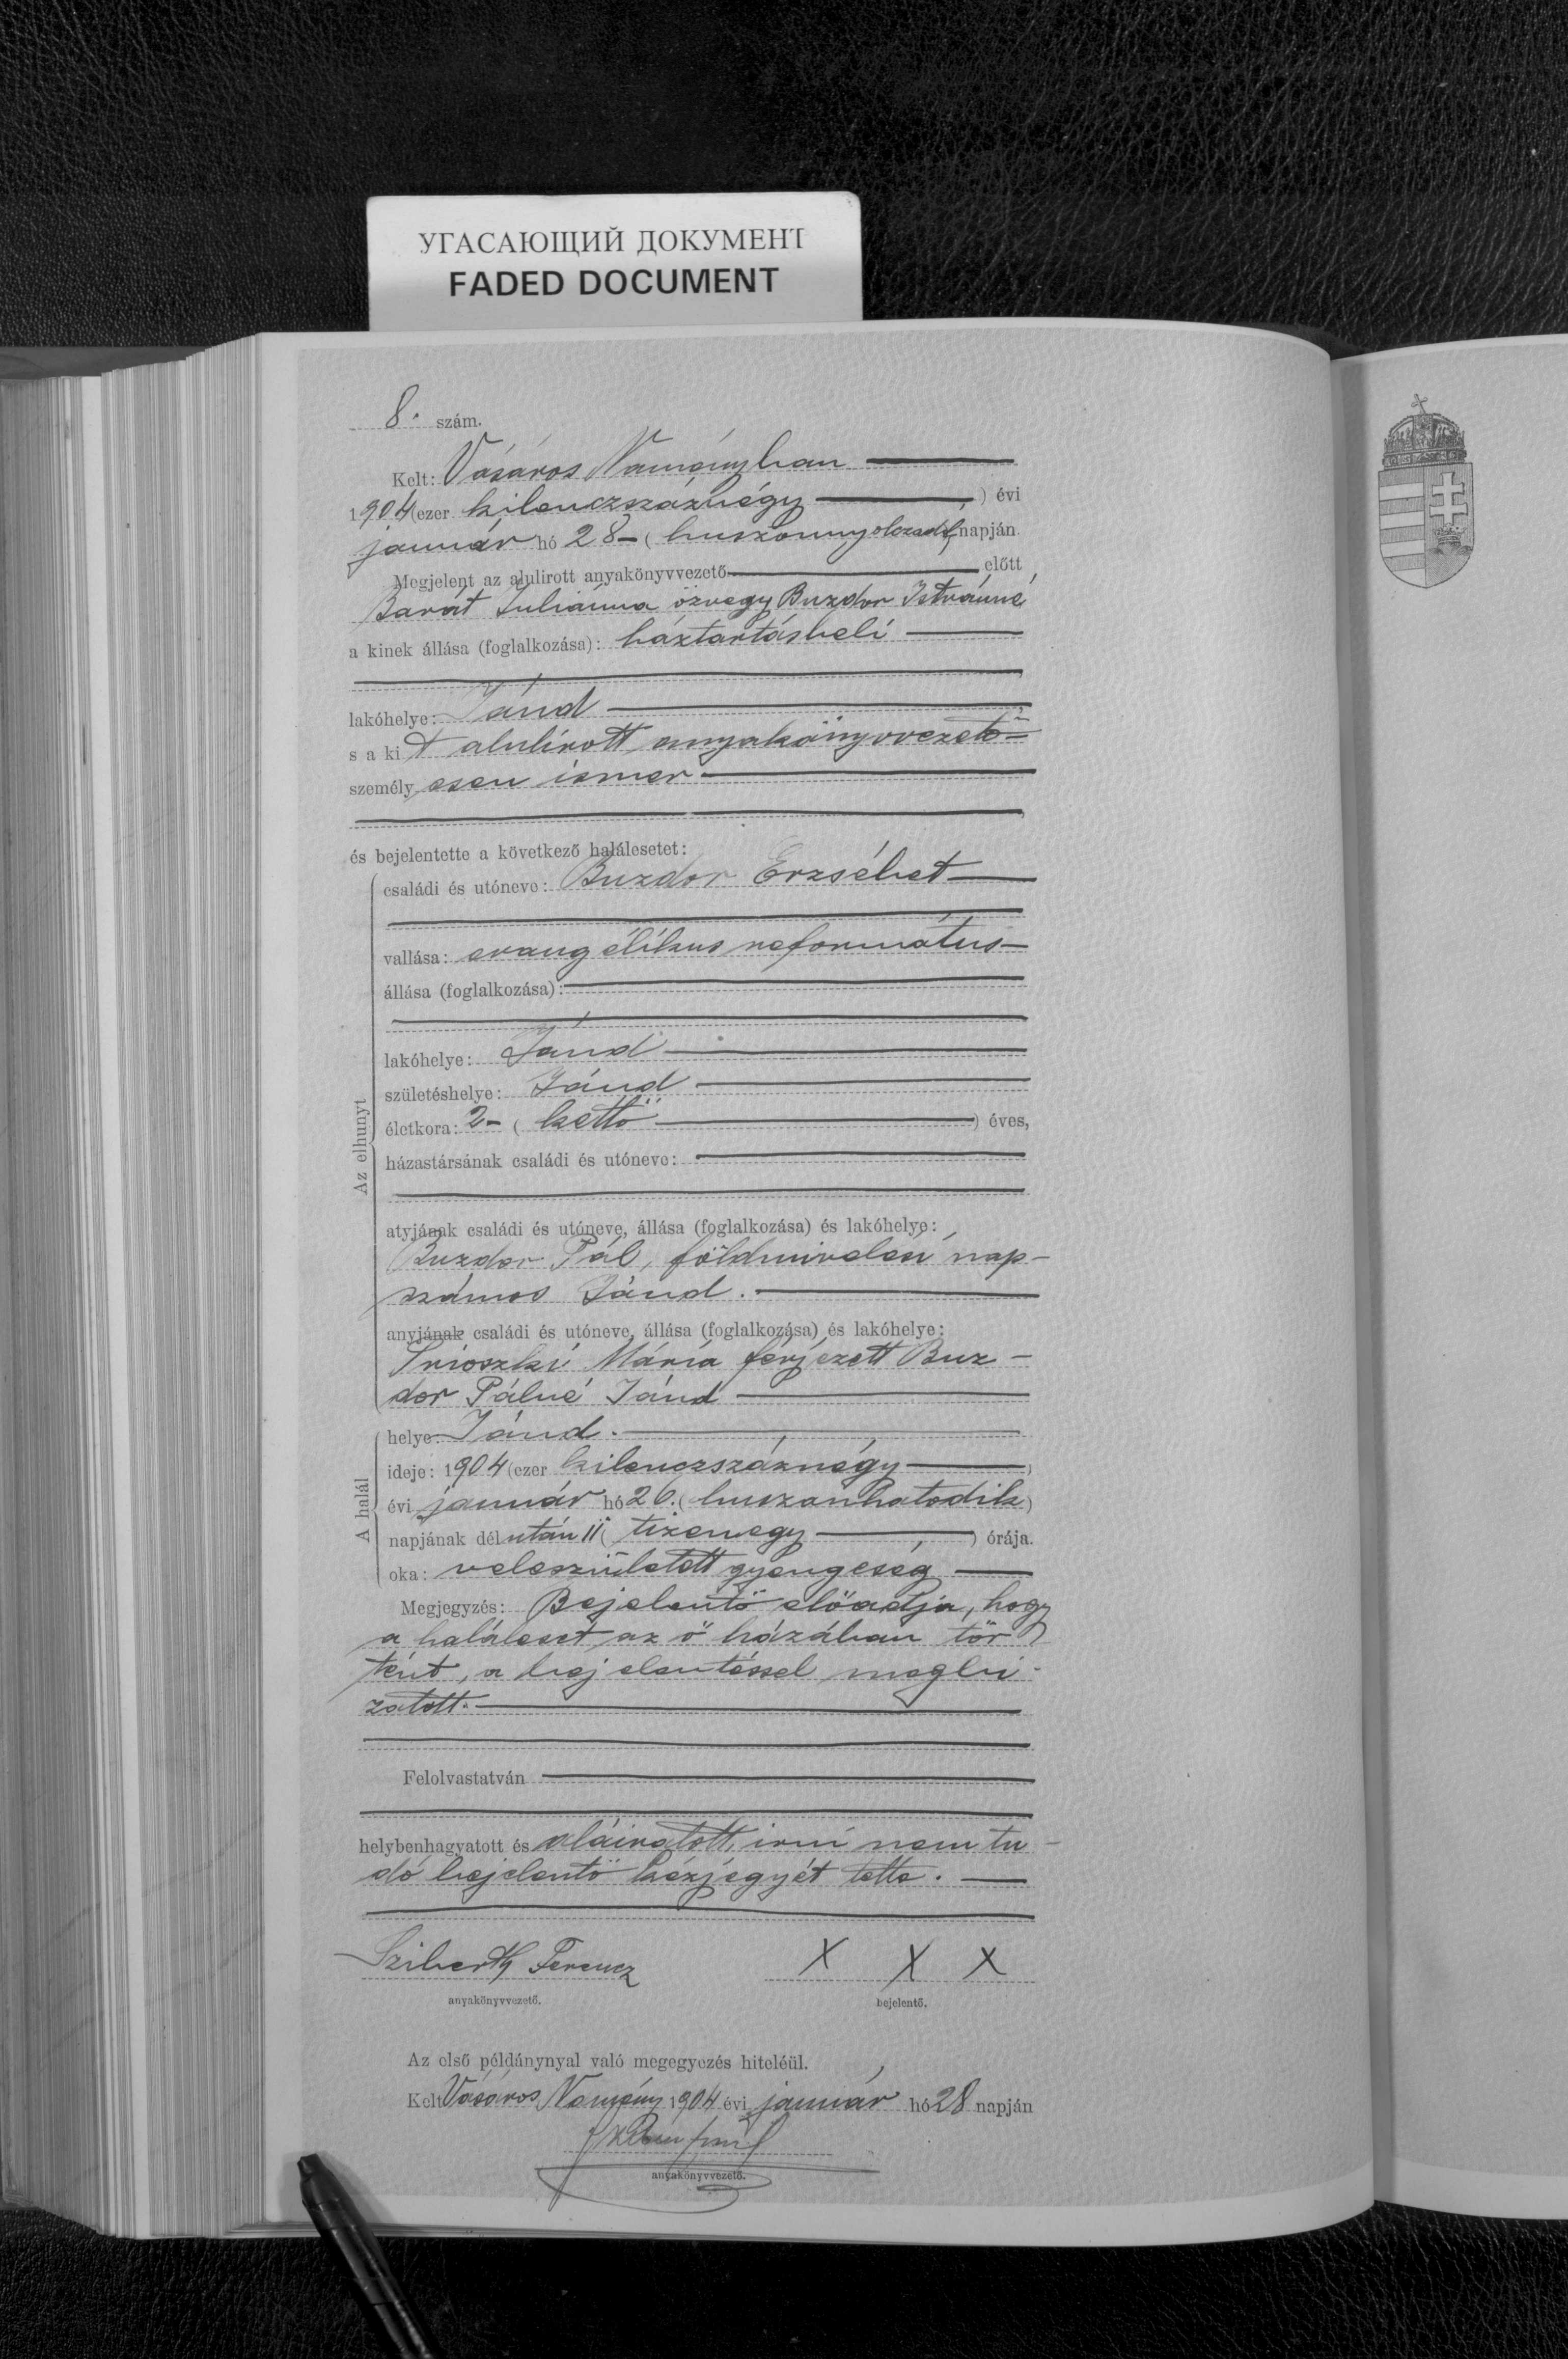 УГАСАЮЩИЙ ДОКУМЕНТ
FADED DOCUMENT
8. szám.
Kelt: Vásáros Naményban
1904 (ezer kilenczszáznégy ) évi
január hó 28 – ( huszonnyolczadik napján.
Megjelent az alulirott anyakönyvvezető előtt
Barát Juliánna özvegy Buzdor Istvánné
a kinek állása (foglalkozása): háztartásbeli
lakóhelye: Jánd
s a kit alulírott anyakönyvvezető
személyesen ismer
és bejelentette a következő halálesetet:
Az elhunyt
családi és utóneve: Buzdor Erzsébet
vallása: evangélikus református
állása (foglalkozása):
lakóhelye: Jánd
születéshelye: Jánd
életkora: 2 – ( kettő ) éves,
házastársának családi és utóneve:
atyjának családi és utóneve, állása (foglalkozása) és lakóhelye:
Buzdor Pál, földmivelési nap-
számos Jánd.
anyjának családi és utóneve, állása (foglalkozása) és lakóhelye:
Mária férjezett Buz-
dor Pálné Jánd
A halál
helye Jánd.
ideje: 1904 (ezer kilenczszáznégy )
évi január hó 26. ( huszonhatodik )
napjának délután 11 ( tizenegy ) órája.
oka: veleszületett gyengeség
Megjegyzés: Bejelentő előadja, hogy
a haláleset az ő házában tör
tént, a bejelentéssel megbi-
zatott.
Felolvastatván
helybenhagyatott és aláiratott, irni nem tu-
dó bejelentő kézjegyét tette.
Sziberth Ferencz X X X
anyakönyvvezető. bejelentő.
Az első példánynyal való megegyezés hiteléül.
Kelt Vásáros Namény 1904 évi január hó 28 napján
anyakönyvvezető.